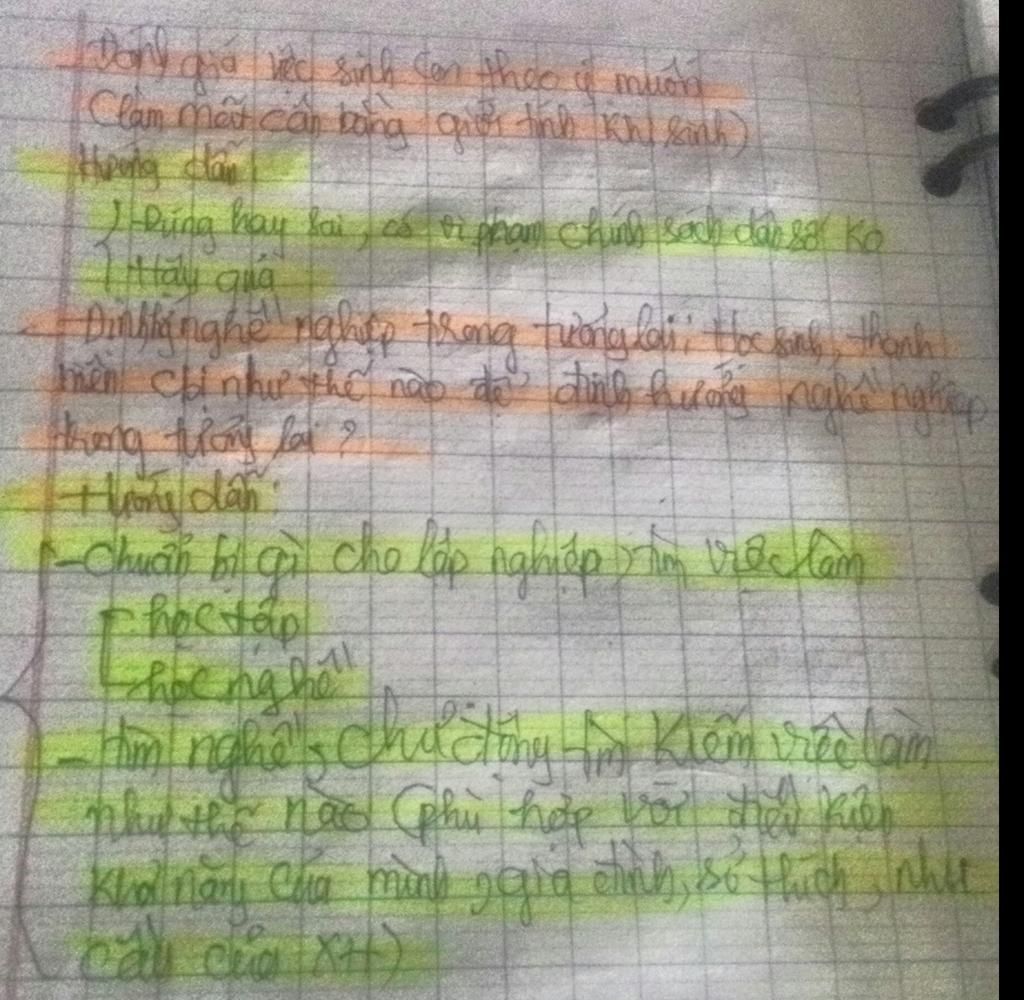 - Đánh giá việc sinh con theo ý muốn
(làm mất cân bằng giới tính khi sinh)
Hướng dẫn:
- Đúng hay sai, có vi phạm chính sách dân số ko
Hậu quả
- Định hướng nghề nghiệp trong tương lai, Học sinh, thanh
niên cbị như thế nào để định hướng nghề nghiệp
trong tương lai?
Hướng dẫn:
- Chuẩn bị gì cho lập nghiệp, tìm việc làm
- học tập
- học nghề
- tìm nghề, chủ động tìm kiếm việc làm
như thế nào (phù hợp với điều kiện
khả năng của mình, gia đình, sở thích, nhu
cầu của XH)